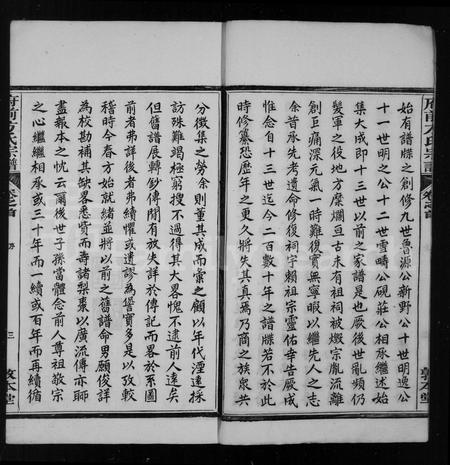 府前方氏宗譜
卷之首
敦本堂
始有譜牒之創修九世魯源公新野公十世明逸公
十一世明之公十二世雪疇公硯莊公相承繼述始
集大成即十三世以前之家譜是也厥後世亂頻仍
髮軍之役地方糜爛亘古未有祖祠被燬宗胤流離
創巨痛深元氣一時難復實無寧暇以繼先人之志
余昔承先考遺命修復祠宇賴祖宗靈佑幸告厥成
惟念自十三世迄今二百數十年之譜牒若不於此
時修纂恐歷年之更久將失其真焉乃商之族衆共
分徵集之勞余則董其成而彙之顧以年代湮遠採
訪殊難竭極窮搜不過得其大畧愧不逮前人遠矣
但舊譜展轉鈔傳間有放失詳於傳記而畧於系圖
前者弗詳後者弗續懼或遺謬為譽實多是以攷較
稽時今春方始就緒並將以前之舊譜命男願俊詳
為校勘補其缺畧悉贊而壽諸梨棗以廣流傳亦聊
盡報本之忱云爾後世子孫當體念前人尊祖敬宗
之心繼繼相承或三十年而一續或百年而再續循
府前方氏宗譜
卷之首
序
三
敦本堂